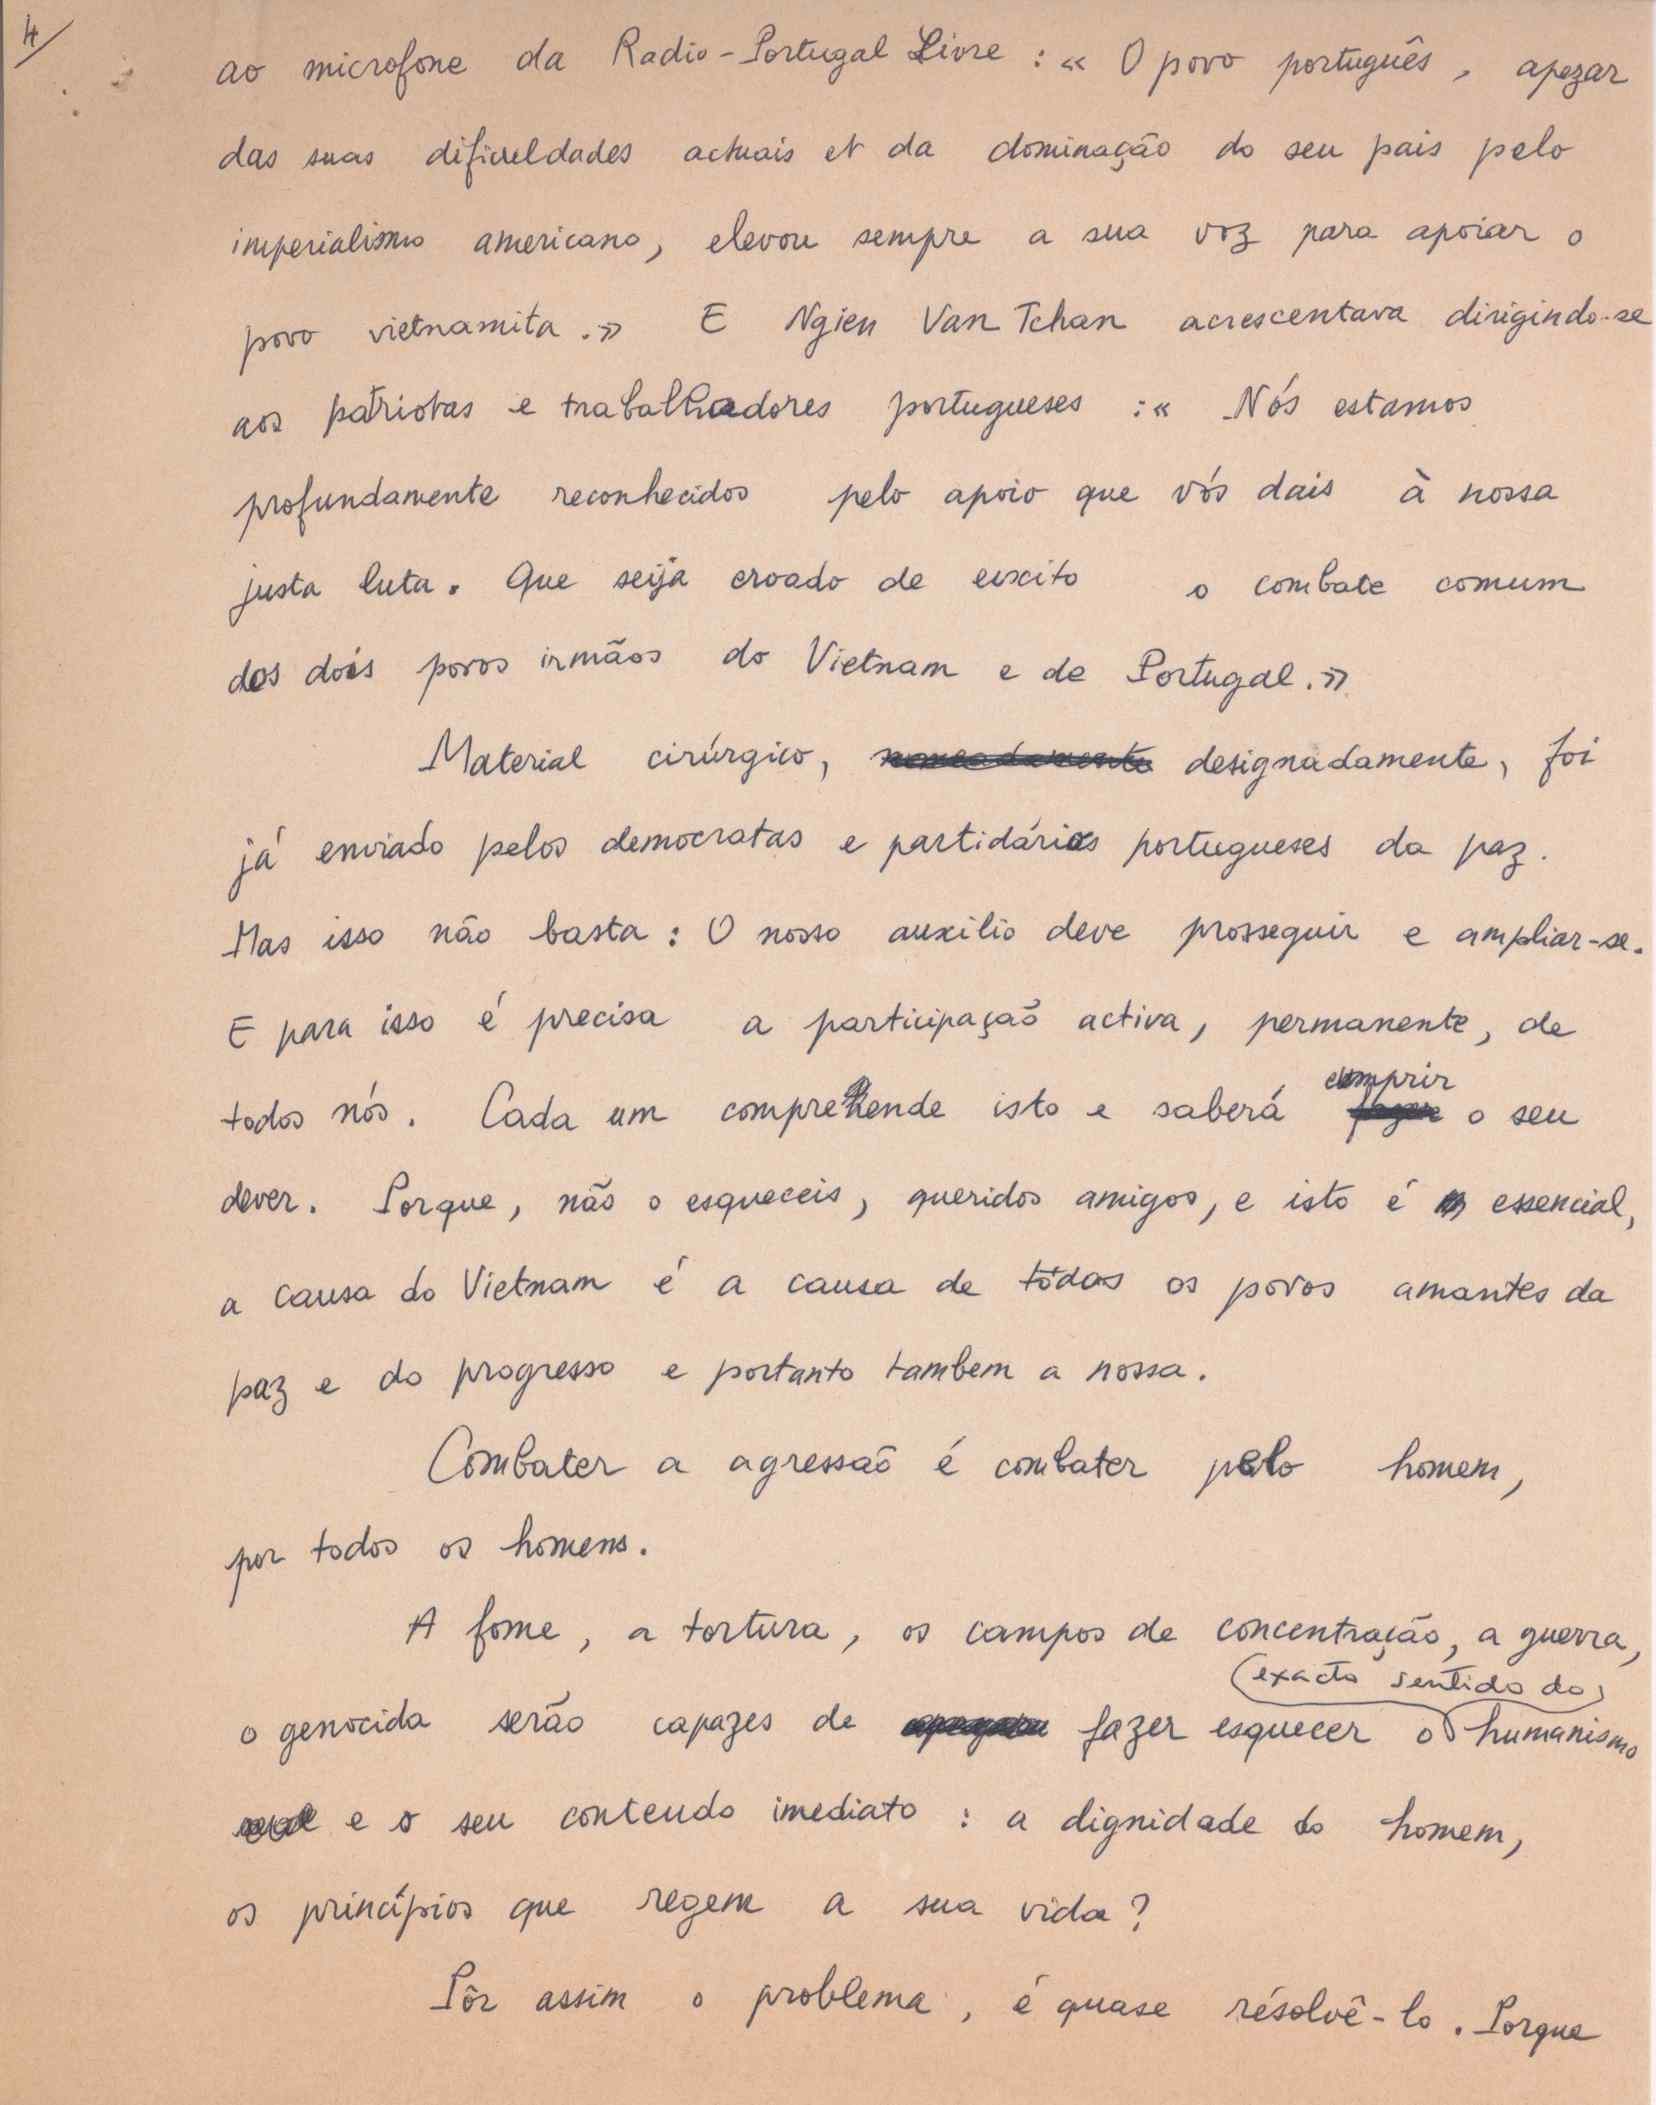 4/
ao microfone da Radio-Portugal Livre : « O povo português, apezar
das suas dificuldades actuais et da dominação do seu pais pelo
imperialismo americano, elevou sempre a sua voz para apoiar o
povo vietnamita.» E Ngien Van Tchan acrescentava dirigindo-se
aos patriotas e trabalhadores portugueses :« Nós estamos
profundamente reconhecidos pelo apoio que vós dais à nossa
justa luta. Que seija croado de euxito o combate comum
dos dois povos irmãos do Vietnam e de Portugal.»
Material cirúrgico, nomeadamente designadamente, foi
já enviado pelos democratas e partidários portugueses da paz.
Mas isso não basta : O nosso auxilio deve prosseguir e ampliar-se.
E para isso é precisa a participação activa, permanente, de
todos nós. Cada um comprehende isto e saberá
cumprir
fazer o seu
dever. Porque, não o esqueceis, queridos amigos, e isto é essencial,
a causa do Vietnam é a causa de tôdos os povos amantes da
paz e do progresso e portanto tambem a nossa.
Combater a agressão é combater pelo homem,
por todos os homens.
A fome, a tortura, os campos de concentração, a guerra,
(exacto sentido do)
o genocida serão capazes de fazer esquecer o humanismo
e o seu conteudo imediato : a dignidade do homem,
os princípios que regem a sua vida?
Pôr assim o problema, é quase résolvê-lo. Porque